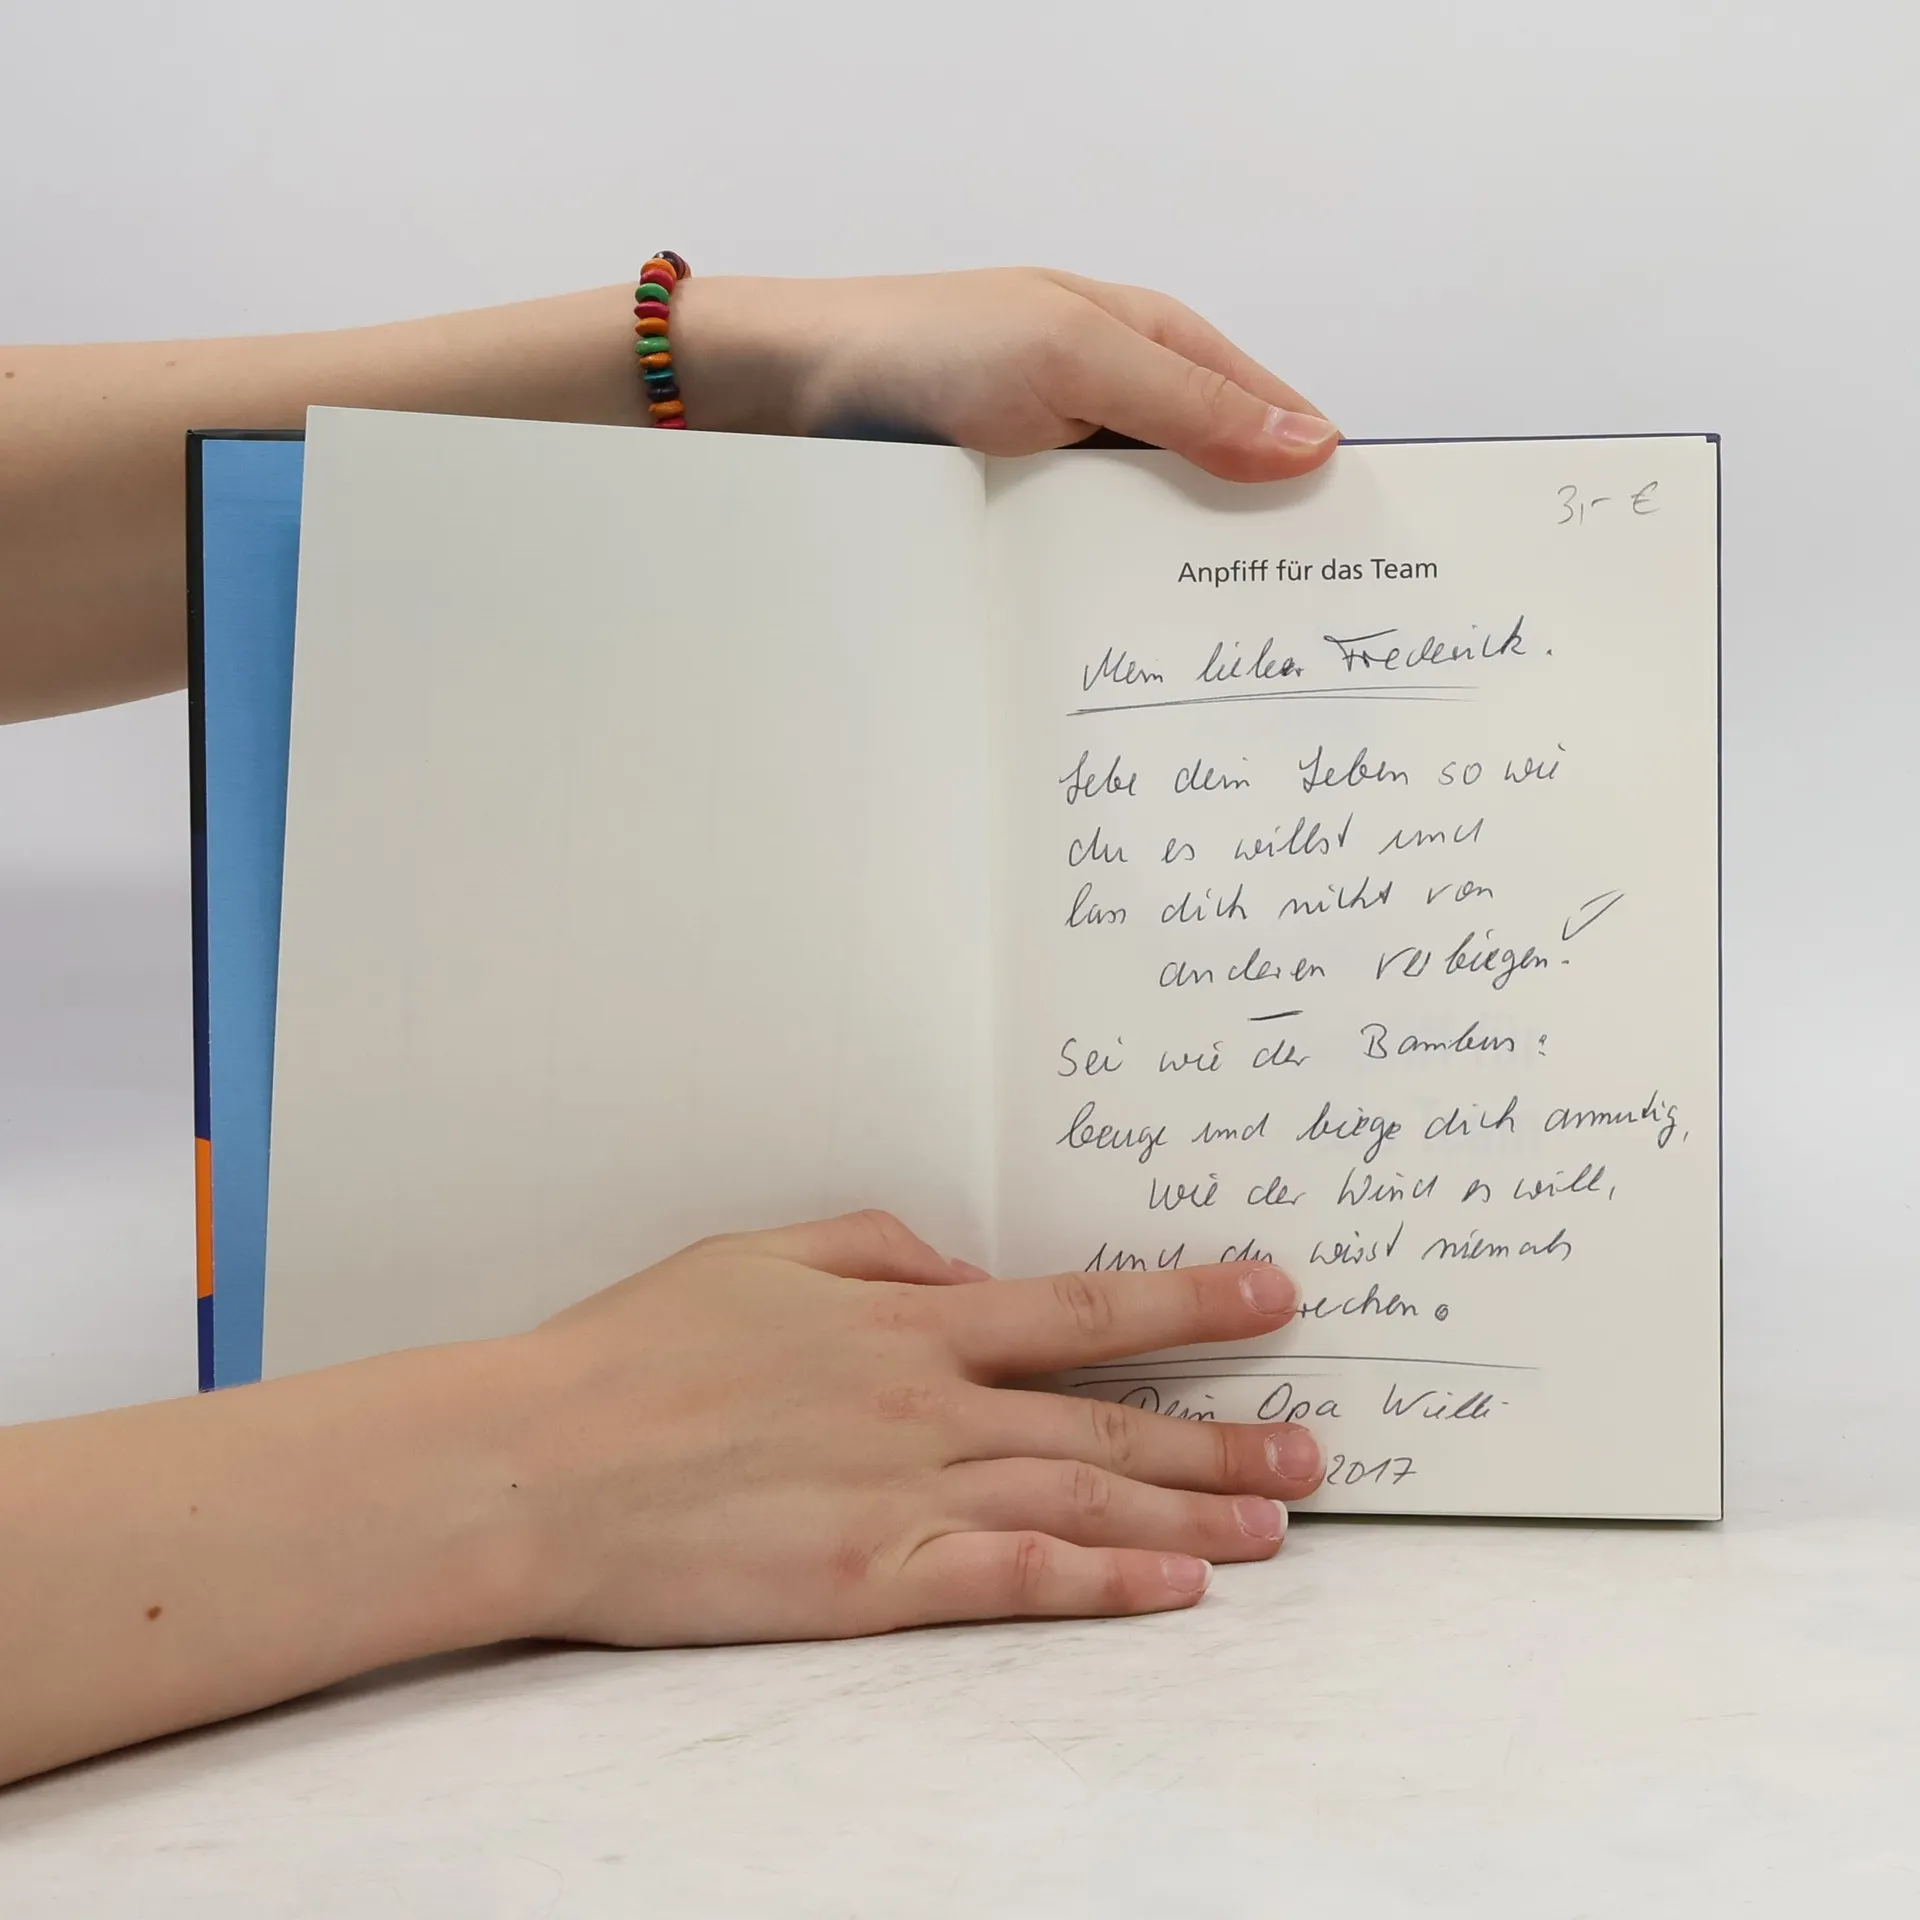 3,- €
Anpfiff für das Team
Mein lieber Frederick.
Lebe dein Leben so wie
du es willst und
lass dich nicht von
anderen verbiegen!
Sei wie der Bambus:
beuge und biege dich anmutig,
wie der Wind es will,
und du wirst niemals
rechen.
Dein Opa Willi
2017